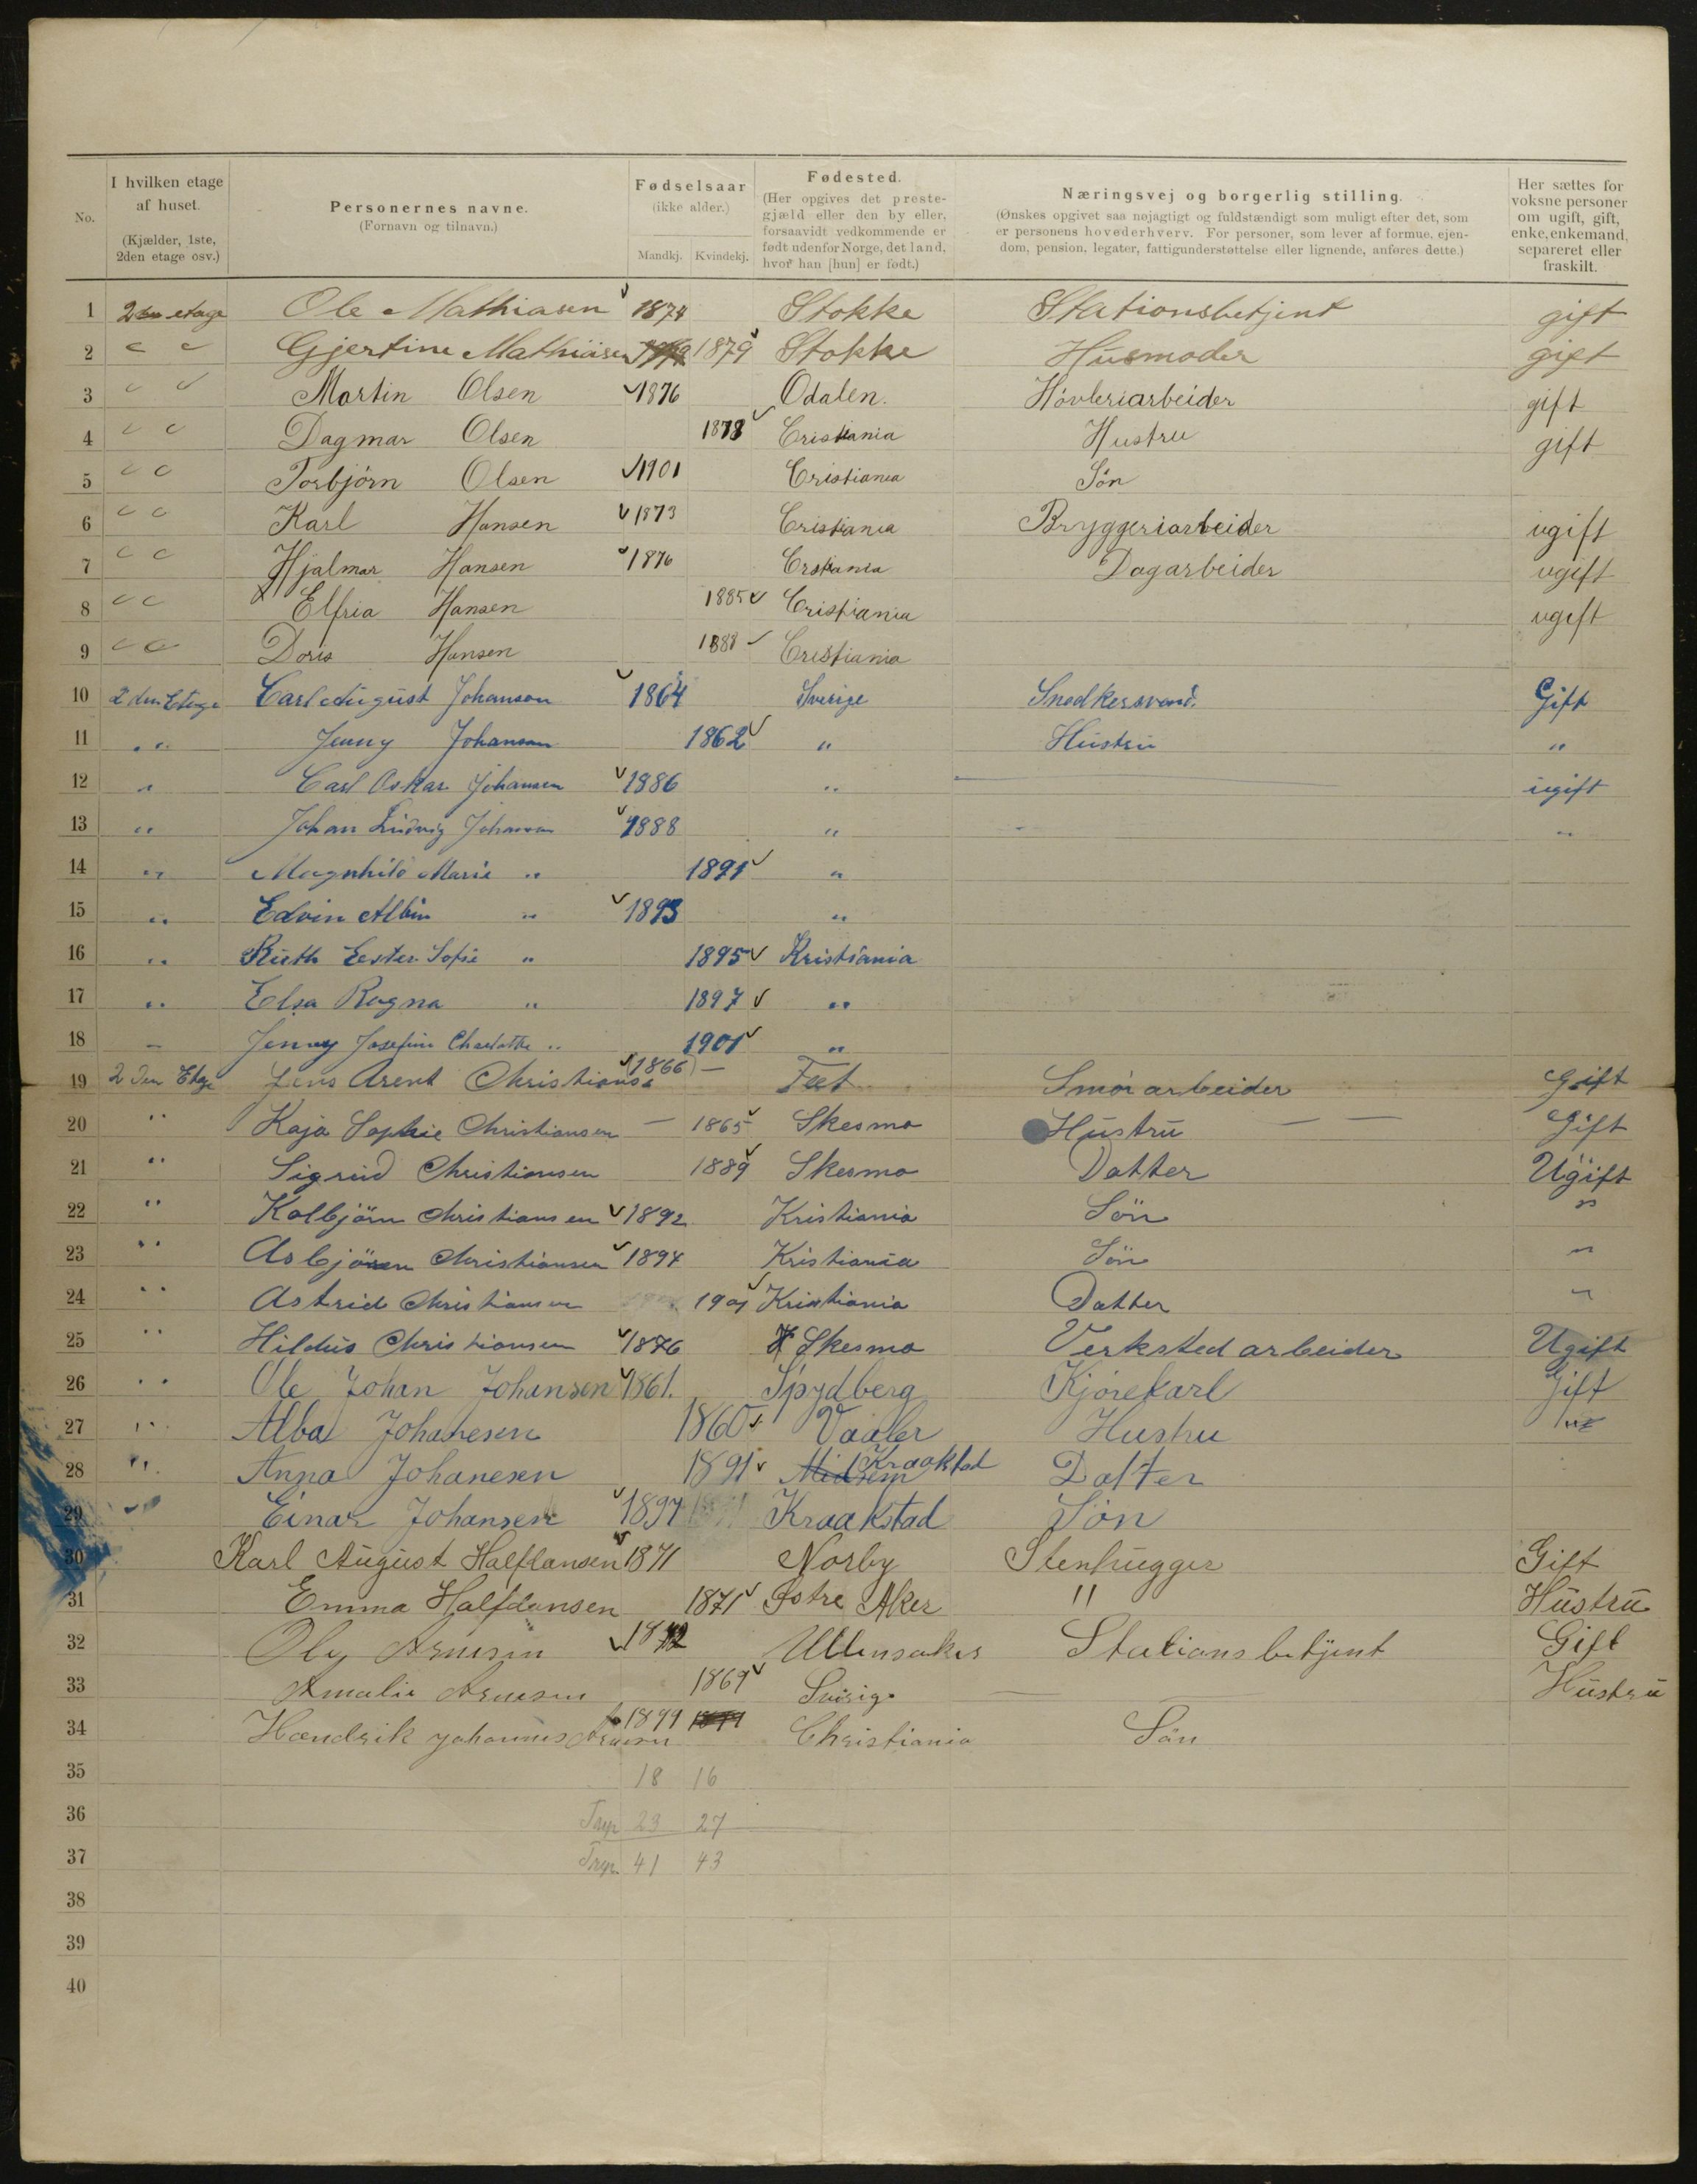 No.
I hvilken etage af huset. (Kjælder, 1ste, 2den etage osv.)
Personernes navne. (Fornavn og tilnavn.)
Fødselsaar (ikke alder.) Mandkj. Kvindekj.
Fødested. (Her opgives det prestegjæld eller den by eller, forsaavidt vedkommende er født udenfor Norge, det land, hvor han [hun] er født.)
Næringsvej og borgerlig stilling. (Ønskes opgivet saa nøjagtigt og fuldstændigt som muligt efter det, som er personens hovederhverv. For personer, som lever af formue, ejendom, pension, legater, fattigunderstøttelse eller lignende, anføres dette.)
Her sættes for voksne personer om ugift, gift, enke, enkemand, separeret eller fraskilt.
1 2den etage Ole Mathiasen 1874 Stokke Stationsbetjent gift
2 " " Gjertine Mathiasen 1879 Stokke Husmoder gift
3 " " Martin Olsen 1876 Odalen. Høvleriarbeider gift
4 " " Dagmar Olsen 1878 Cristiania Hustru gift
5 " " Torbjörn Olsen 1901 Cristiania Sön
6 " " Karl Hansen 1873 Cristiania Bryggeriarbeider ugift
7 " " Hjalmar Hansen 1876 Crstania Dagarbeider ugift
8 " " Elfria Hansen 1885 Cristiania ugift
9 " " Doris Hansen 1888 Cristiania
10 2den Etage Carl August Johanson 1864 Sverige Snedkersvend. Gift
11 " " Jenny Johanson 1862 " Hustru "
12 " Carl Oskar Johansen 1886 " ugift
13 " Johan Ludvig Johansen 1888 " "
14 " Magnhild Marie " 1891 "
15 " Edvin Albin " 1893 "
16 " Ruth Ester Sofie " 1895 Kristiania
17 " Elsa Ragna " 1897 "
18 " Jenny Josefine Charlotte " 1901 "
19 2den Etage Jens Arent Christiansen 1866 Feet Smörarbeider Gift
20 " Kaja Sophie Christiansen 1865 Skesmo Hustru Gift
21 " Sigrud Christiansen 1889 Skesmo Datter Ugift
22 " Kolbjörn Christiansen 1892 Kristiania Sön "
23 " Asbjörn Christiansen 1894 Kristiania Sön "
24 " Astrid Christiansen 1901 Kristiania Datter "
25 " Hildus Christiansen 1876 Skesmo Verksted arbeider Ugift
26 " Ole Johan Johansen 1861. Spydberg Kjörekarl Gift
27 " Alba Johanesen 1860 Vaaler Hustru "
28 " Anna Johanesen 1891 Kraakstad Datter
29 " Einar Johansen 1897 Kraakstad Sön
30 Karl August Halfdansen 1871 Norby Stenhugger Gift
31 Emma Halfdansen 1871 Östre Aker " Hustru
32 Ole Arnesen 1872 Ullensaker Stationsbetjent Gift
33 Amalie Arnesen 1869 Sverige Hustru
34 Hændrik Johannes Arnesen 1899 Christiania Sön
35 18 16
36 23 27
37 41 43
38
39
40